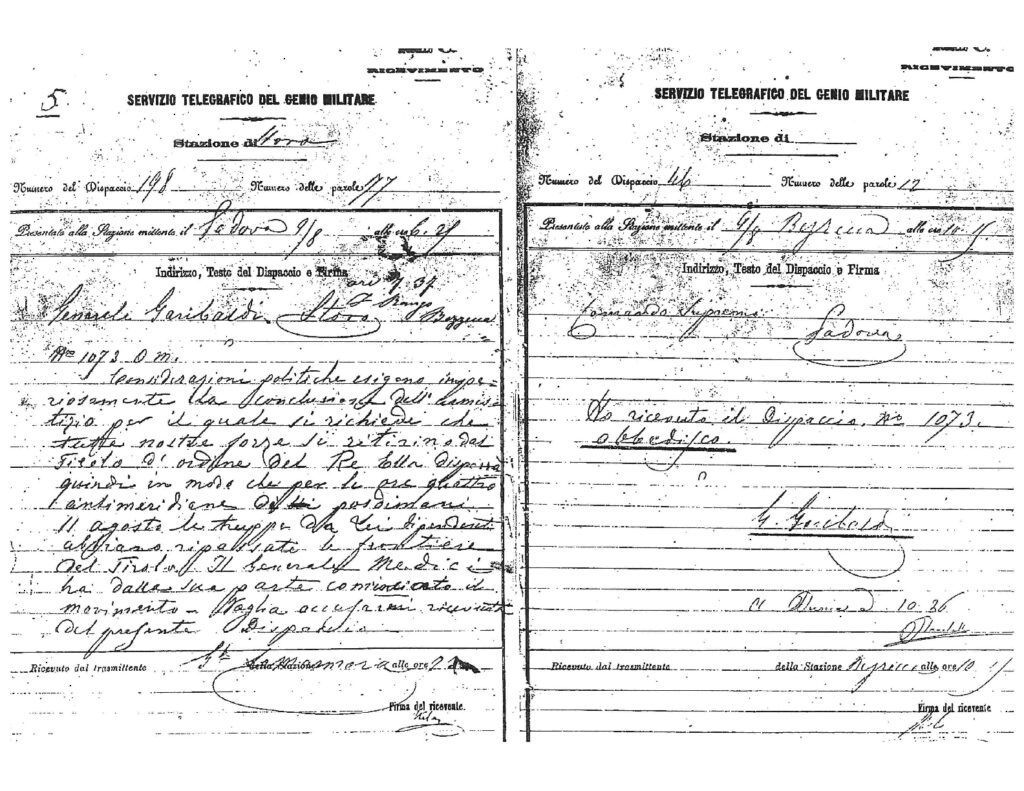 RICEVIMENTO
5
SERVIZIO TELEGRAFICO DEL GENIO MILITARE
Stazione di Storo
Numero del Dispaccio 198 Numero delle parole 77
Presentato alla Stazione mittente il Padova 9/8 alle ore 6.
Indirizzo, Testo del Dispaccio e Firma
ore 7.37
Generale Garibaldi Storo
Bezzecca
No 1073 O m.
Considerazioni politiche esigono impe-
riosamente la conclusione dell'armis-
tizio per il quale si richiede che
tutte nostre forze si ritirino dal
Tirolo d'ordine del Re Ella disporrà
quindi in modo che per le ore quattro
antimeridiane di posdimani
11 agosto le truppe da Lei dipendenti
abbiano ripassate le frontiere
del Tirolo Il Generale Medici
ha dalla sua parte cominciato il
movimento - Voglia accusarmi ricevuta
del presente Dispaccio
Lamarmora
Ricevuto dal trasmittente della Stazione alle ore
Firma del ricevente.
RICEVIMENTO
SERVIZIO TELEGRAFICO DEL GENIO MILITARE
Stazione di
Numero del Dispaccio 46 Numero delle parole 12
Presentato alla Stazione mittente il 9/8 Bezzecca alle ore 10
Indirizzo, Testo del Dispaccio e Firma
Comando Supremo
Padova
Ho ricevuto il Dispaccio No 1073.
Obbedisco.
G. Garibaldi
10.26
Ricevuto dal trasmittente della Stazione alle ore 10
Firma del ricevente